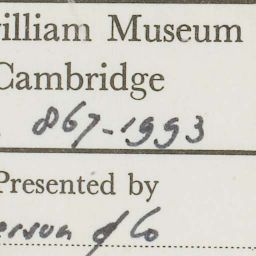 william Museum
Cambridge
867-1993
Presented by
erson & Co